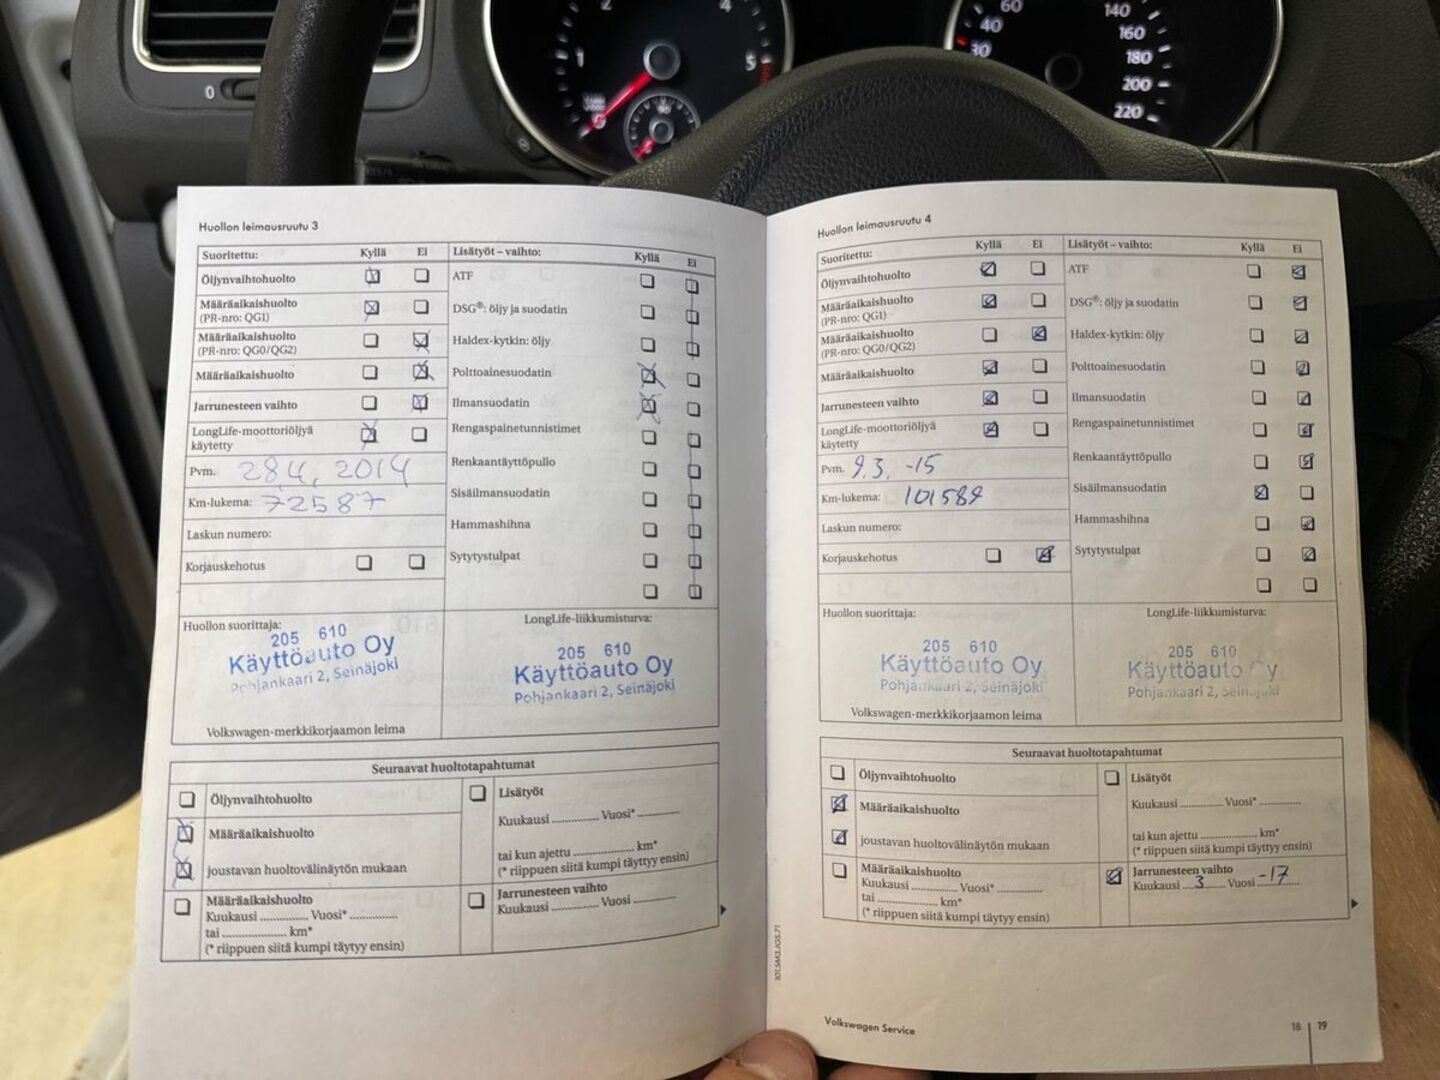 2
4
1
5
0
60
40
30
140
160
180
200
220
Huollon leimausruutu 3
Suoritettu: Kyllä Ei
Öljynvaihtohuolto
Määräaikaishuolto
(PR-nro: QG1)
Määräaikaishuolto
(PR-nro: QG0/QG2)
Määräaikaishuolto
Jarrunesteen vaihto
LongLife-moottoriöljyä
käytetty
Pvm. 28.4, 2014
Km-lukema: 72587
Laskun numero:
Korjauskehotus
Lisätyöt – vaihto: Kyllä Ei
ATF
DSG®: öljy ja suodatin
Haldex-kytkin: öljy
Polttoainesuodatin
Ilmansuodatin
Rengaspainetunnistimet
Renkaantäyttöpullo
Sisäilmansuodatin
Hammashihna
Sytytystulpat
Huollon suorittaja:
205 610
Käyttöauto Oy
Pohjankaari 2, Seinäjoki
Volkswagen-merkkikorjaamon leima
LongLife-liikkumisturva:
205 610
Käyttöauto Oy
Pohjankaari 2, Seinäjoki
Seuraavat huoltotapahtumat
Öljynvaihtohuolto
Määräaikaishuolto
joustavan huoltovälinäytön mukaan
Määräaikaishuolto
Kuukausi .............. Vuosi* ..............
tai ................... km*
(* riippuen siitä kumpi täytyy ensin)
Lisätyöt
Kuukausi .............. Vuosi* ............
tai kun ajettu ................... km*
(* riippuen siitä kumpi täytyy ensin)
Jarrunesteen vaihto
Kuukausi .............. Vuosi ............
Huollon leimausruutu 4
Suoritettu: Kyllä Ei
Öljynvaihtohuolto
Määräaikaishuolto
(PR-nro: QG1)
Määräaikaishuolto
(PR-nro: QG0/QG2)
Määräaikaishuolto
Jarrunesteen vaihto
LongLife-moottoriöljyä
käytetty
Pvm. 9.3, -15
Km-lukema: 101589
Laskun numero:
Korjauskehotus
Lisätyöt – vaihto: Kyllä Ei
ATF
DSG®: öljy ja suodatin
Haldex-kytkin: öljy
Polttoainesuodatin
Ilmansuodatin
Rengaspainetunnistimet
Renkaantäyttöpullo
Sisäilmansuodatin
Hammashihna
Sytytystulpat
Huollon suorittaja:
205 610
Käyttöauto Oy
Pohjankaari 2, Seinäjoki
Volkswagen-merkkikorjaamon leima
LongLife-liikkumisturva:
205 610
Käyttöauto Oy
Pohjankaari 2, Seinäjoki
Seuraavat huoltotapahtumat
Öljynvaihtohuolto
Määräaikaishuolto
joustavan huoltovälinäytön mukaan
Määräaikaishuolto
Kuukausi .............. Vuosi* ............
tai ................... km*
(* riippuen siitä kumpi täytyy ensin)
Lisätyöt
Kuukausi .............. Vuosi* ............
tai kun ajettu ................... km*
(* riippuen siitä kumpi täytyy ensin)
Jarrunesteen vaihto
Kuukausi ...3... Vuosi -17
Volkswagen Service
18 | 19